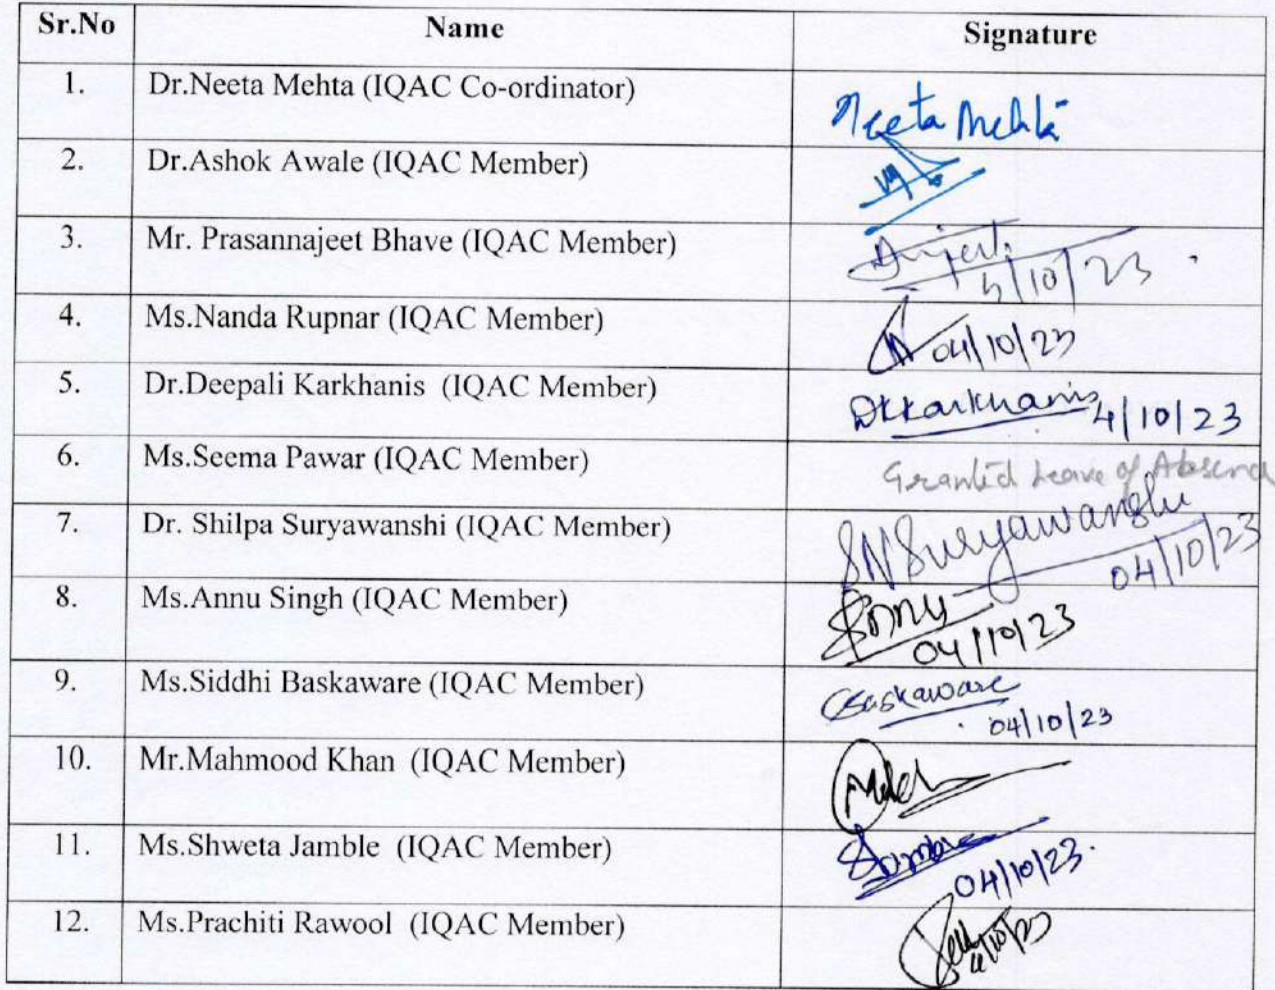 Sr.No Name Signature
1. Dr.Neeta Mehta (IQAC Co-ordinator) Neeta Mehta
2. Dr.Ashok Awale (IQAC Member)
3. Mr. Prasannajeet Bhave (IQAC Member)
/10/23
4. Ms.Nanda Rupnar (IQAC Member) 04/10/23
5. Dr.Deepali Karkhanis (IQAC Member) DKKarkhanis 4/10/23
6. Ms.Seema Pawar (IQAC Member) Granted Leave of Absence
7. Dr. Shilpa Suryawanshi (IQAC Member) SNSuryawanshi
04/10/23
8. Ms.Annu Singh (IQAC Member) Annu
04/10/23
9. Ms.Siddhi Baskaware (IQAC Member) Baskaware
04/10/23
10. Mr.Mahmood Khan (IQAC Member)
11. Ms.Shweta Jamble (IQAC Member) Jamble
04/10/23.
12. Ms.Prachiti Rawool (IQAC Member)
4/10/23